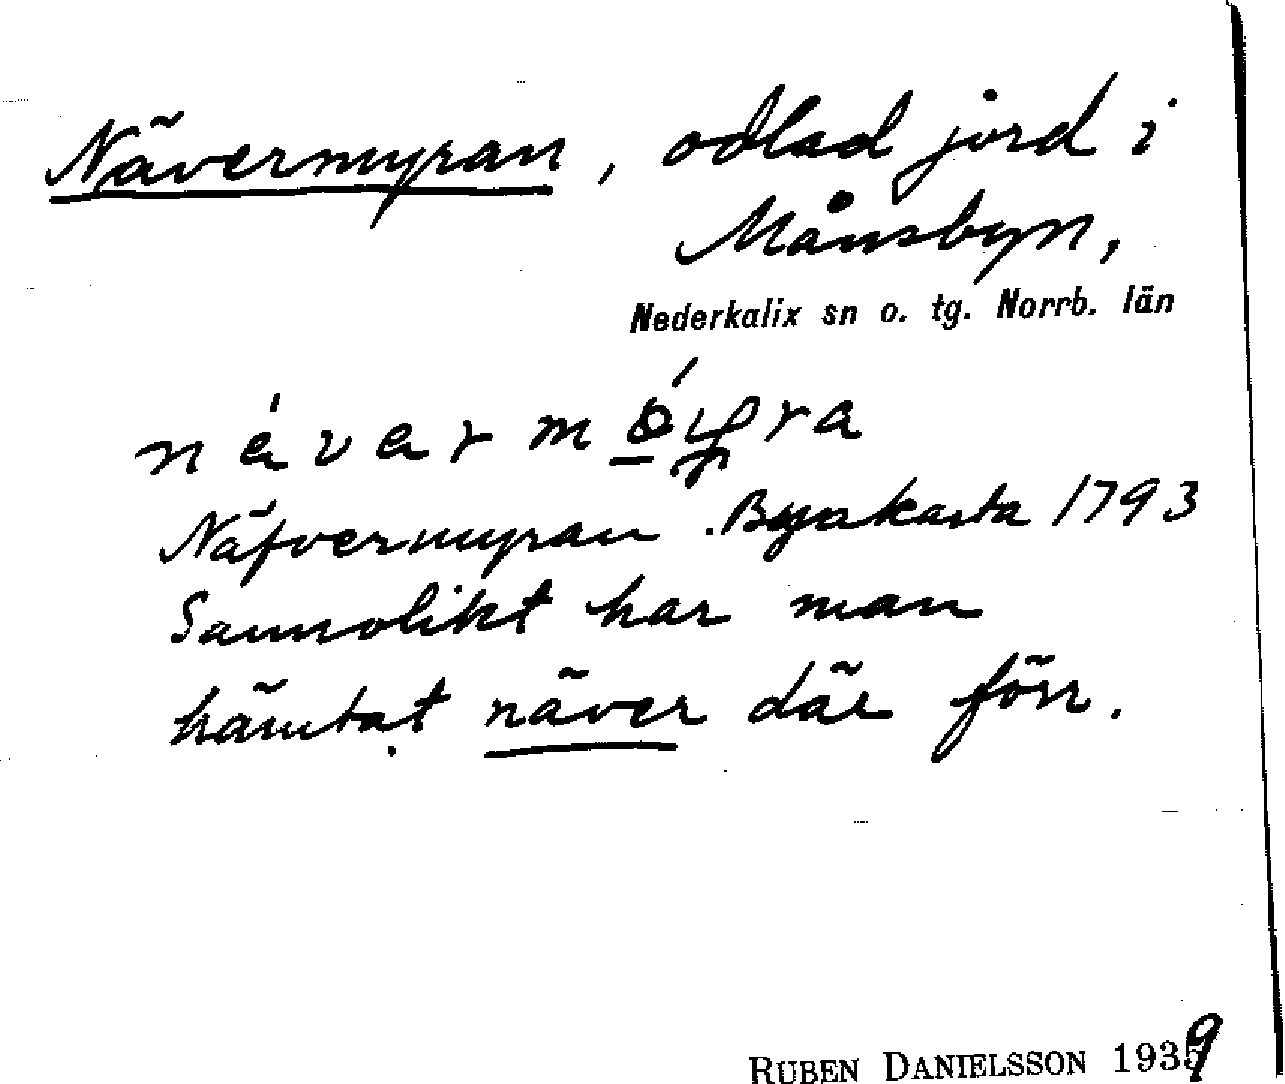 Nävermyran, odlad jord i
Månsbyn,
Nederkalix sn o. tg. Norrb. län
Näfvermyran. Byakarta 1793
Sannolikt har man
hämtat näver där förr.
RUBEN DANIELSSON 1939